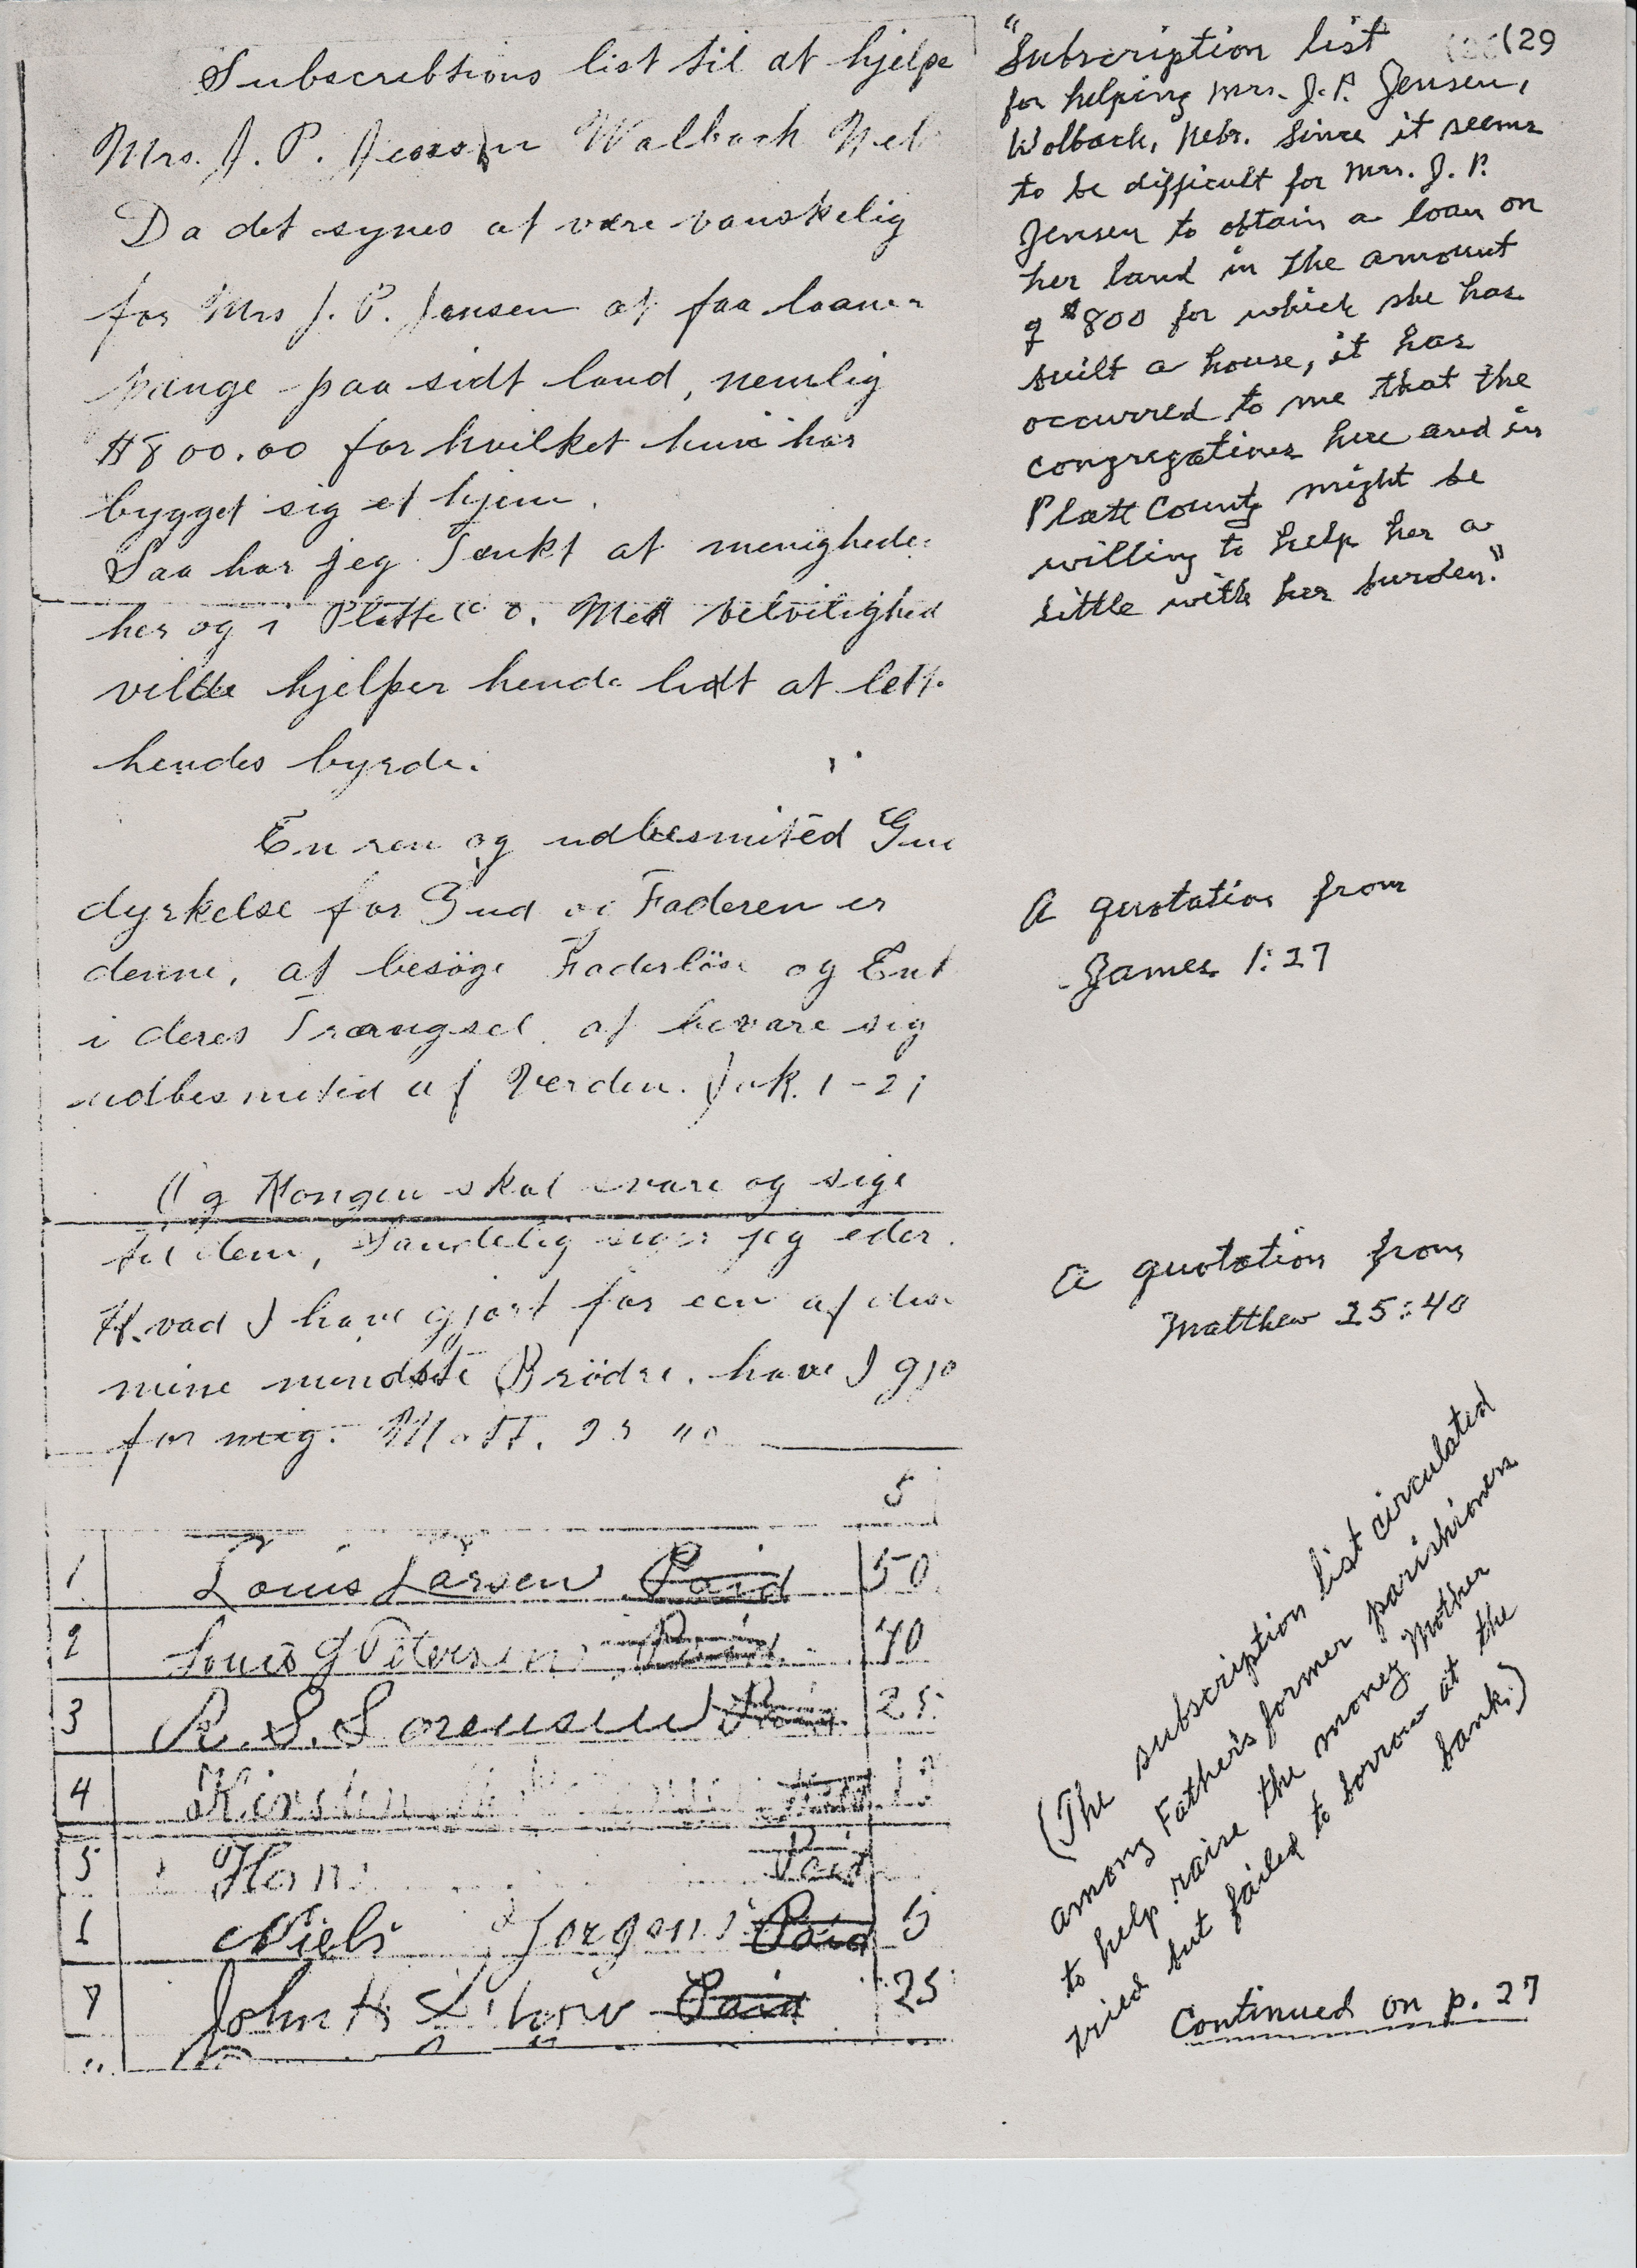 Subscribtions list til at hjelpe
Mrs. J. P. Jensen Walbach Neb
Da det synes at være vanskelig
for Mrs J. P. Jensen at faa laane
penge paa sidt land, nemlig
$800.00 for hvilket hun har
bygget sig et hjem.
Saa har jeg tænkt at menighede
her og i Platte Co. Med velvilighed
vilde hjelper hende lidt at lette
hendes byrde.
En ren og udbesmited Gu
dyrkelse for Gud og Faderen er
denne, at besöge Faderlöse og Enk
i deres Trængsel at bevare sig
udbesmited af Verden. Jak. 1-27
Og Kongen skal svare og sige
til dem, Sandelig siger jeg eder.
Hvad I have gjort for een af disse
mine mindste Brödre. have I gjo
for mig. Matt. 25 40
5
1 Louis Larsen Paid 50
2 Louis J Petersen Paid 40
3 R. S. Sorensen Paid 25
4 Kirsten Paid
5 Hans Paid
6 Niels Jorgens Paid 5
7 John H Paid 25
(29
"Subscription list
for helping Mrs. J. P. Jensen,
Wolbach, Nebr. Since it seems
to be difficult for Mrs. J. P.
Jensen to obtain a loan on
her land in the amount
of $800 for which she has
built a house, it has
occurred to me that the
congregations here and in
Platt County might be
willing to help her a
little with her burden."
A quotation from
James 1:27
A quotation from
Matthew 25:40
(The subscription list circulated
among Father's former parishioners
to help raise the money Mother
tried but failed to borrow at the
bank.)
Continued on p. 27